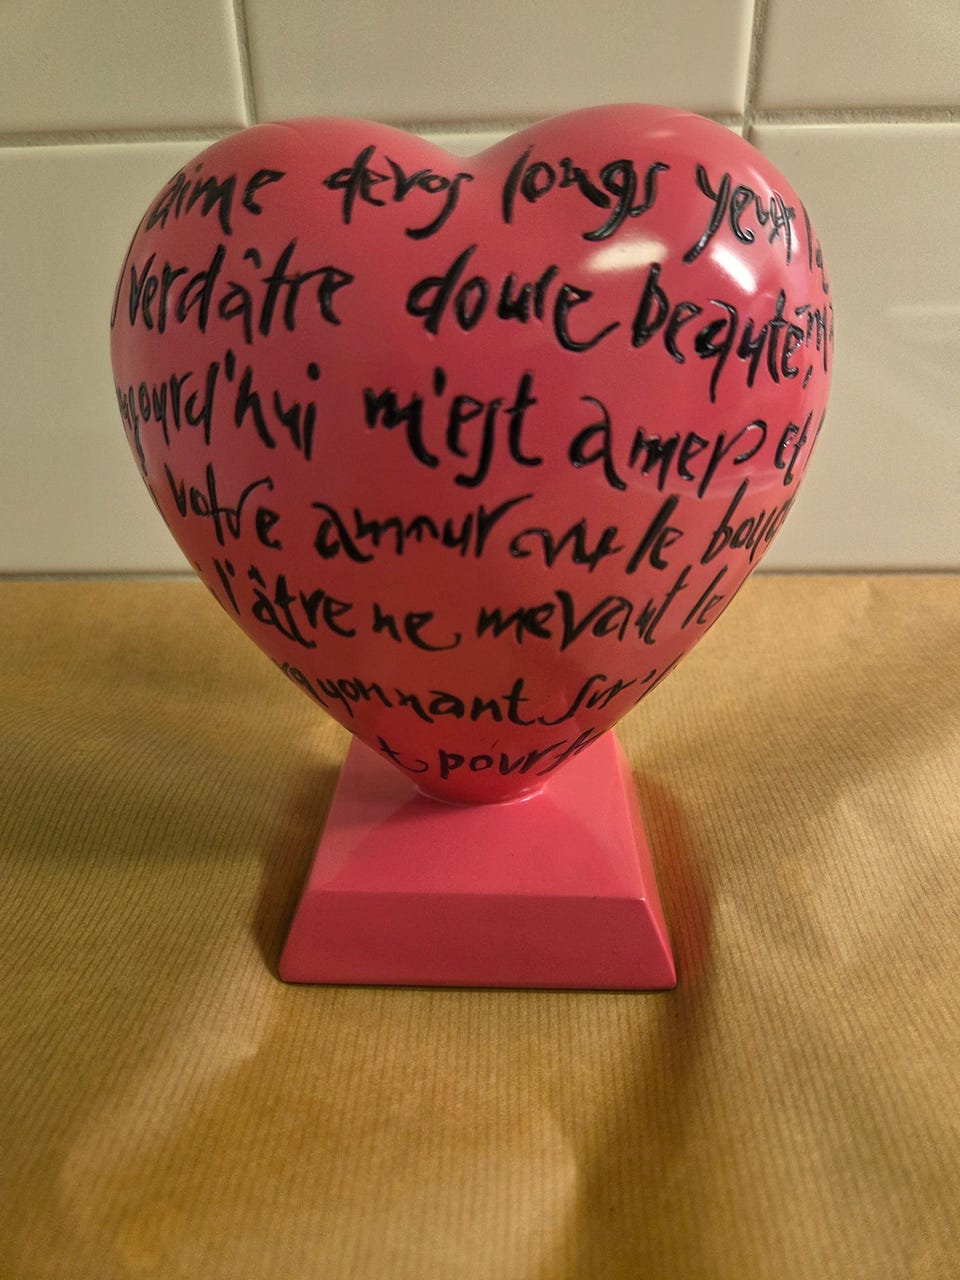 aime de vos longs yeux la
verdâtre douce beauté, m
jourd'hui m'est amer et
votre amour ni le bou
l'âtre ne me vaut le
yonnant sur
t pour